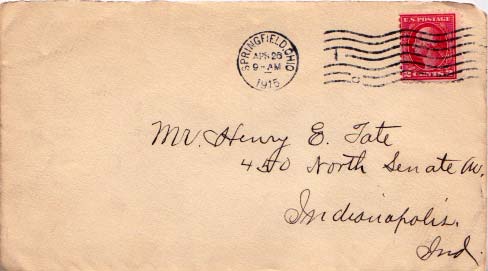 SPRINGFIELD, OHIO
APR 26
9-AM
1915
U.S. POSTAGE
2 CENTS 2
Mr. Henry E. Tate
450 North Senate Av.
Indianapolis.
Ind.